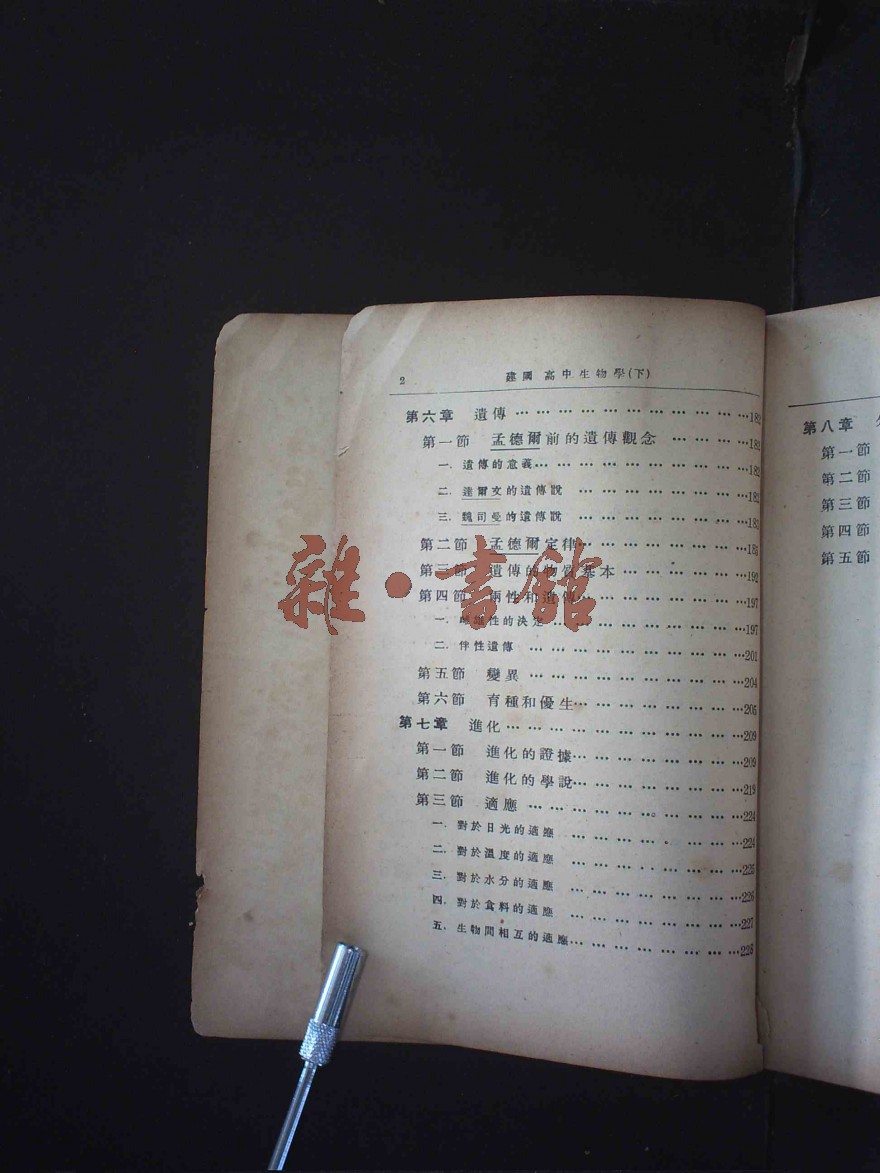 2 建國高中生物學(下)
第六章 遺傳 … … … … … … … … … … … …182
第一節 孟德爾前的遺傳觀念 … … … …182
一. 遺傳的意義… … … … … … … … … …182
二. 達爾文的遺傳說 … … … … … … … …182
三. 魏司曼的遺傳說 … … … … … … … …183
第二節 孟德爾定律… … … … … … … …185
第三節 遺傳的物質基本 … … … … … …192
第四節 兩性和遺傳… … … … … … … …197
一. 雌雄性的決定 … … … … … … … … …197
二. 伴性遺傳 … … … … … … … … … …201
第五節 變異 … … … … … … … … … …204
第六節 育種和優生… … … … … … … …205
第七章 進化… … … … … … … … … … …209
第一節 進化的證據… … … … … … … …209
第二節 進化的學說… … … … … … … …219
第三節 適應 … … … … … … … … … …224
一. 對於日光的適應 … … … … … … … …224
二. 對於溫度的適應 … … … … … … … …225
三. 對於水分的適應 … … … … … … … …226
四. 對於食料的適應 … … … … … … … …227
五. 生物間相互的適應… … … … … … … …228
第八章
第一節
第二節
第三節
第四節
第五節
雜·書館